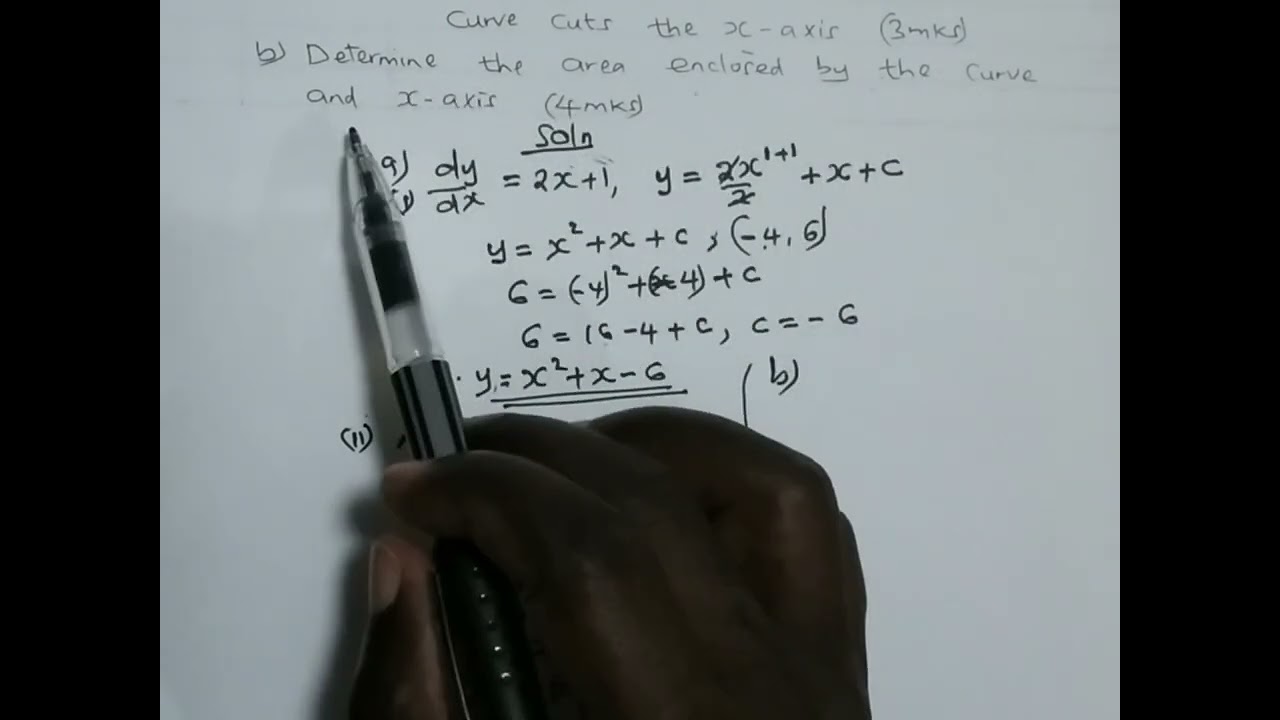 Curve cuts the x-axis (3mks)
b) Determine the area enclosed by the curve
and x-axis (4mks)
Soln
a) (i) dy/dx = 2x+1, y = 2x^(1+1)/2 + x + c
y = x² + x + c , (-4, 6)
6 = (-4)² + (-4) + c
6 = 16 - 4 + c, c = - 6
y = x² + x - 6
b)
(ii)